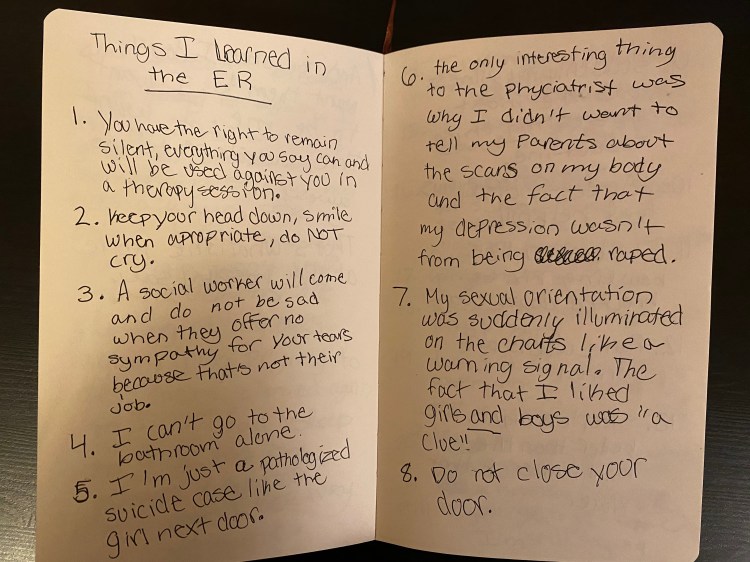 Things I Learned in
the ER
1. You have the right to remain
silent, everything you say can and
will be used against you in
a therapy session.
2. keep your head down, smile
when apropriate, do NOT
cry.
3. A social worker will come
and do not be sad
when they offer no
sympathy for your tears
because that's not their
job.
4. I can't go to the
bathroom alone.
5. I I'm just a pathologized
suicide case like the
girl next door.
6. the only interesting thing
to the phyciatrist was
why I didn't want to
tell my parents about
the scars on my body
and the fact that
my depression wasn't
from being raped.
7. My sexual orientation
was suddenly illuminated
on the charts like a
warning signal. The
fact that I liked
girls and boys was "a
clue!!
8. Do not close your
door.